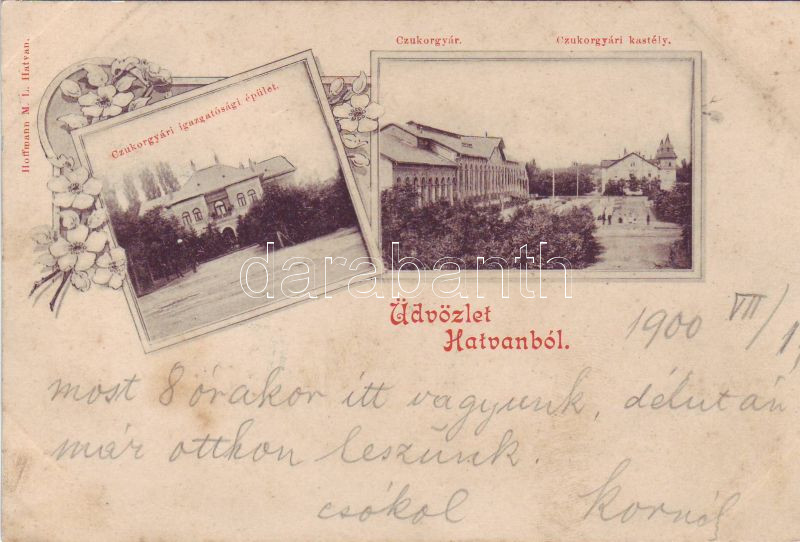 Hoffmann M. L. Hatvan.
Czukorgyári igazgatósági épület.
Czukorgyár.
Czukorgyári kastély.
darabanth
Üdvözlet
Hatvanból.
1900 VII/1
most 8 órakor itt vagyunk, délután
már otthon leszünk.
csókol Kornél